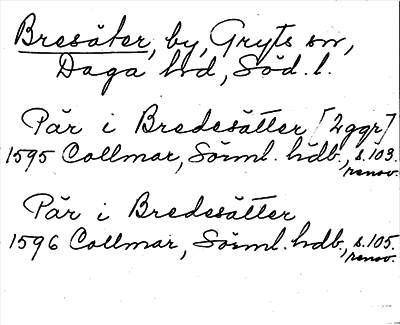 Bresäter, by, Gryts sn,
Daga hd, Söd. l.
Pär i Bredesätter [2ggr]
1595 Collmar, Sörml. hdb., s. 103.
renov.
Pär i Bredesätter
1596 Collmar, Sörml. hdb., s. 105.
renov.